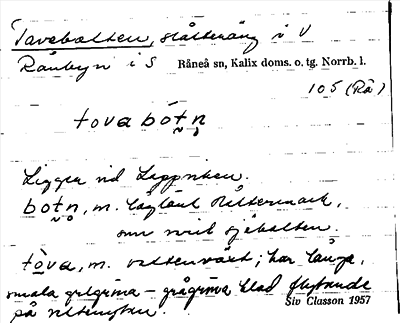 Tavabotten, slåtteräng i V
Rånbyn i S Råneå sn, Kalix doms. o. tg. Norrb. l.
105 (Rå)
tova bótn
Ligger vid Lappviken.
botn, m. låglänt slåttermark,
som mest sjöbotten.
tova, m. vattenväxt; har långa,
smala gulgröna - grågröna blad flytande
på vattenytan. Siv Classon 1957